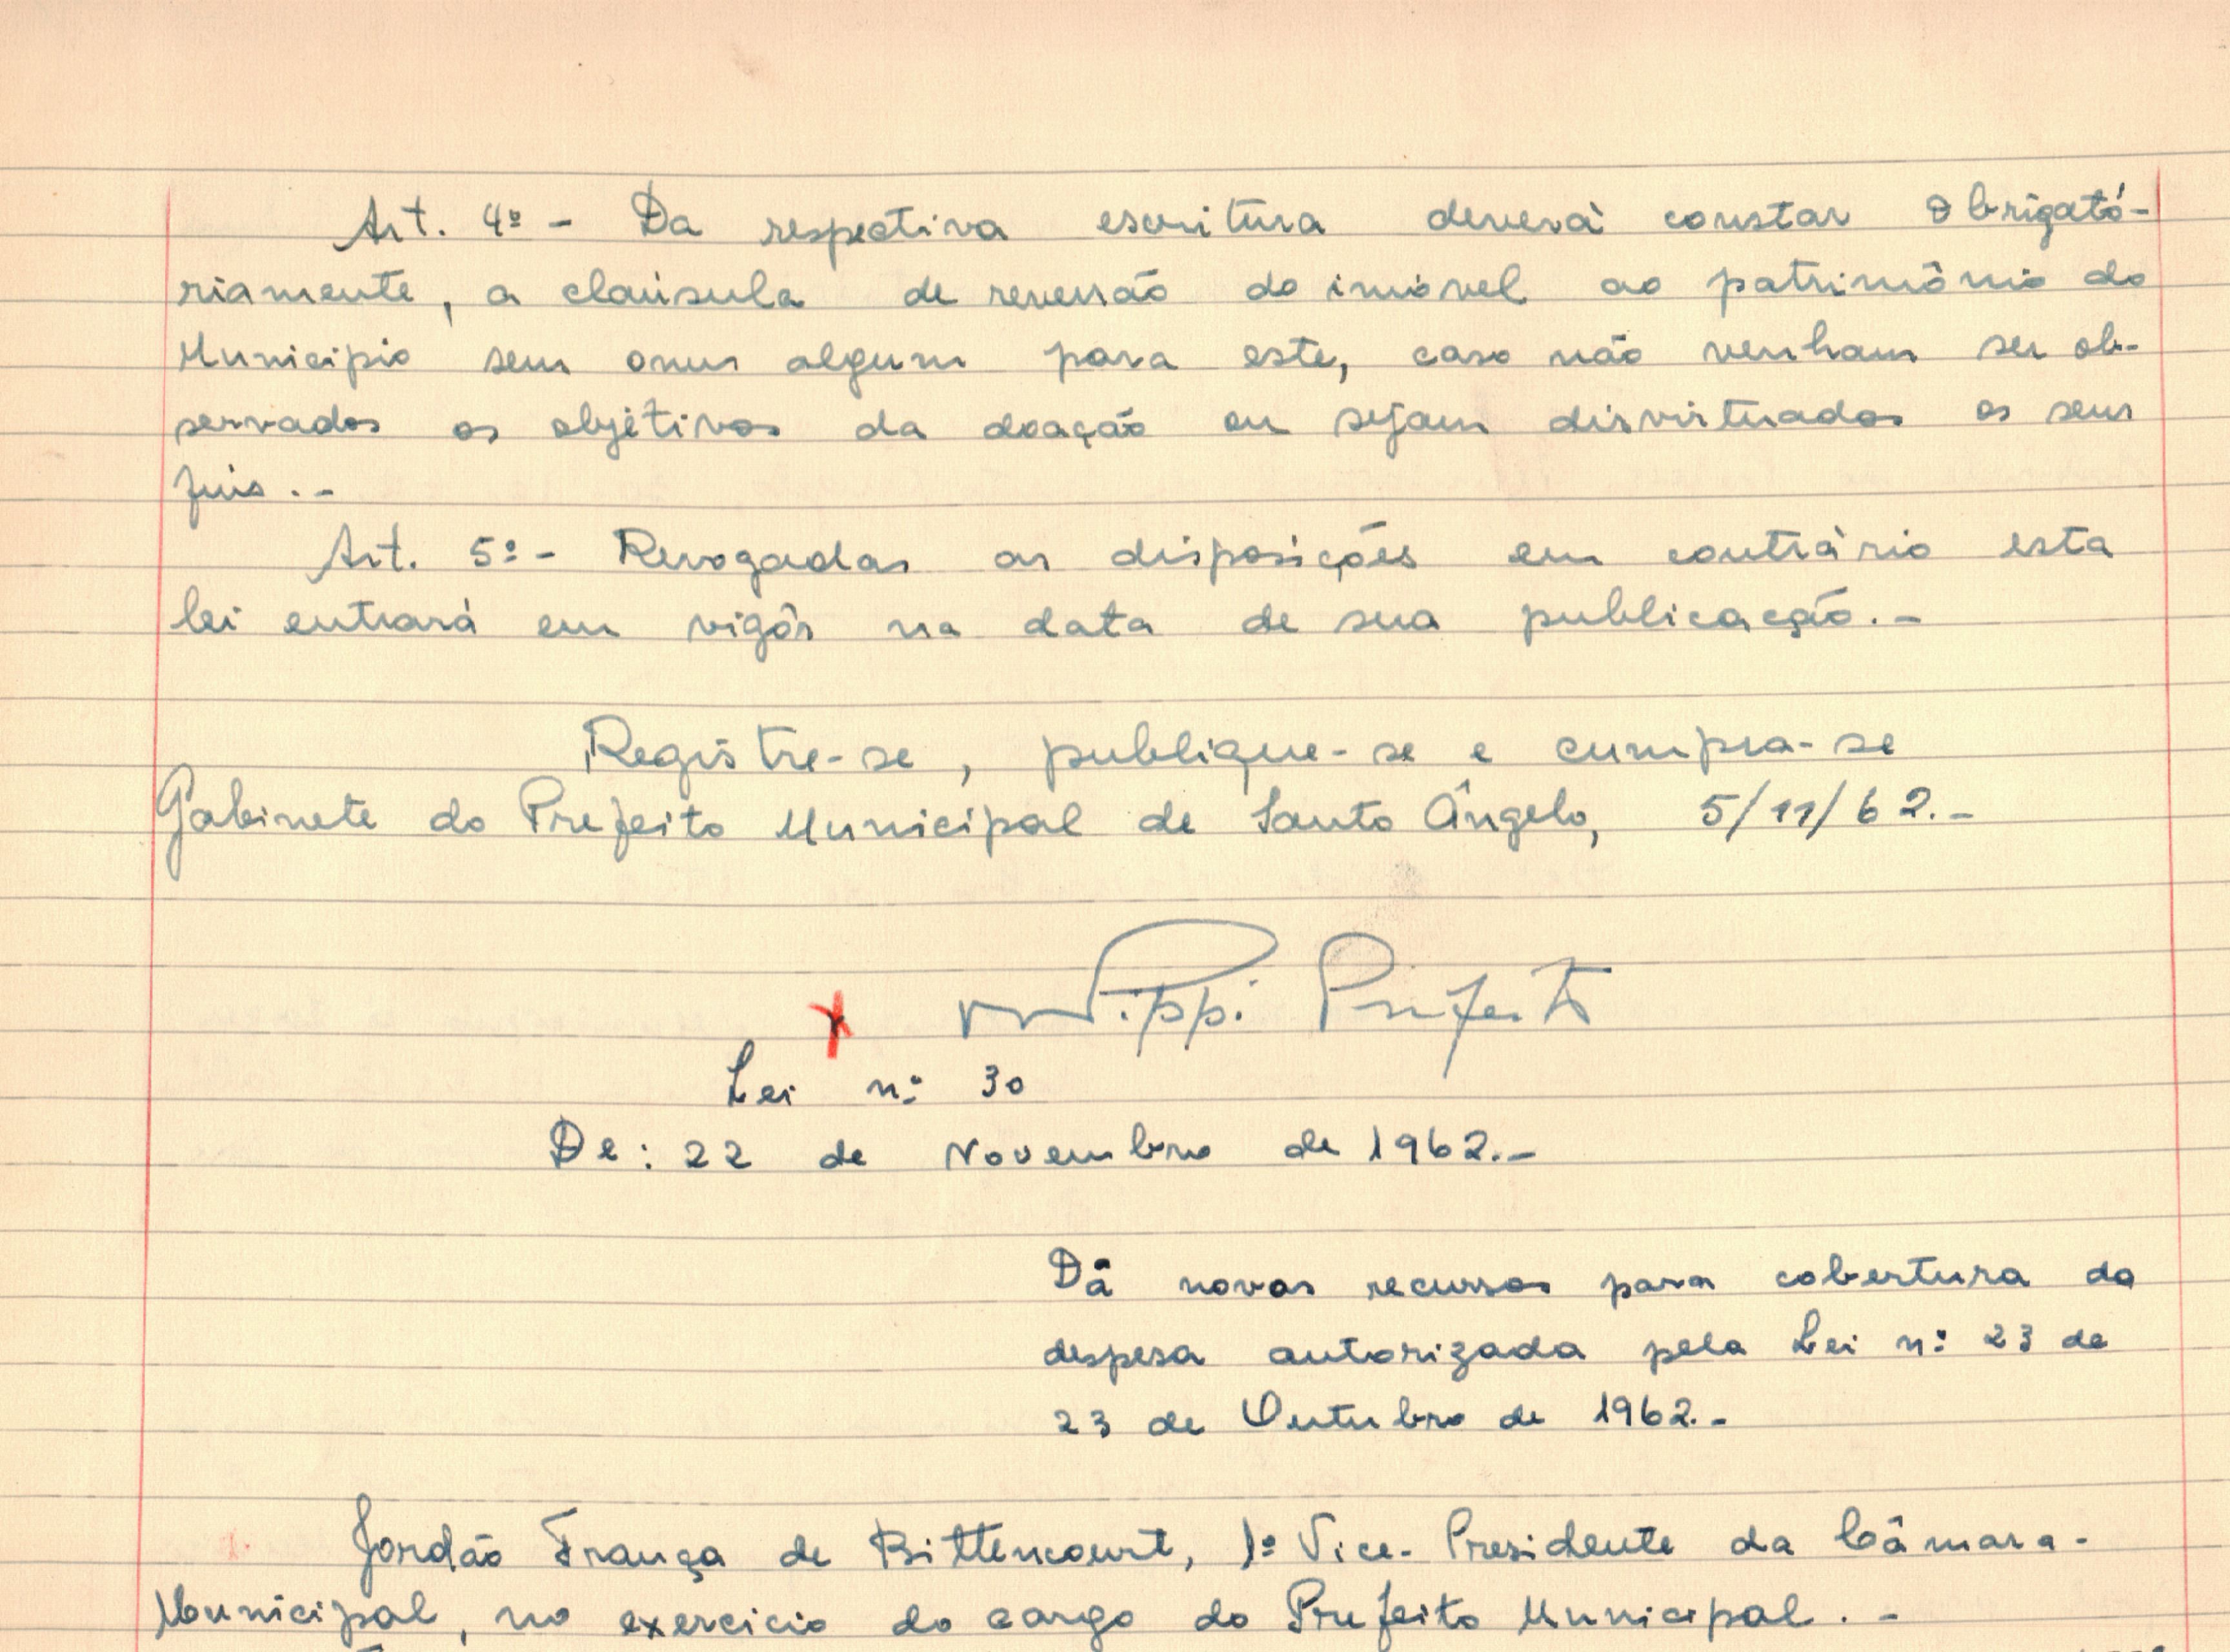 Art. 4º - Da respectiva escritura deverá constar obrigató-
riamente, a clausula de reversão do imóvel ao patrimônio do
Municipio sem onus algum para este, caso não venham ser ob-
servados os objétivos da doação ou sejam disvirtuados os seus
fins.-
Art. 5º - Revogadas as disposições em contrário esta
lei entrará em vigôr na data de sua publicacção.-
Registre-se, publique-se e cumpra-se
Gabinete do Prefeito Municipal de Santo Ângelo, 5/11/62.-
Pippi Prefeito
Lei nº 30
De: 22 de Novembro de 1962.-
Dá novos recursos para cobertura da
despesa autorizada pela Lei nº 23 de
23 de Outubro de 1962.-
Jordão França de Bittencourt, 1º Vice-Presidente da Câmara-
Municipal, no exercicio do cargo do Prefeito Municipal.-